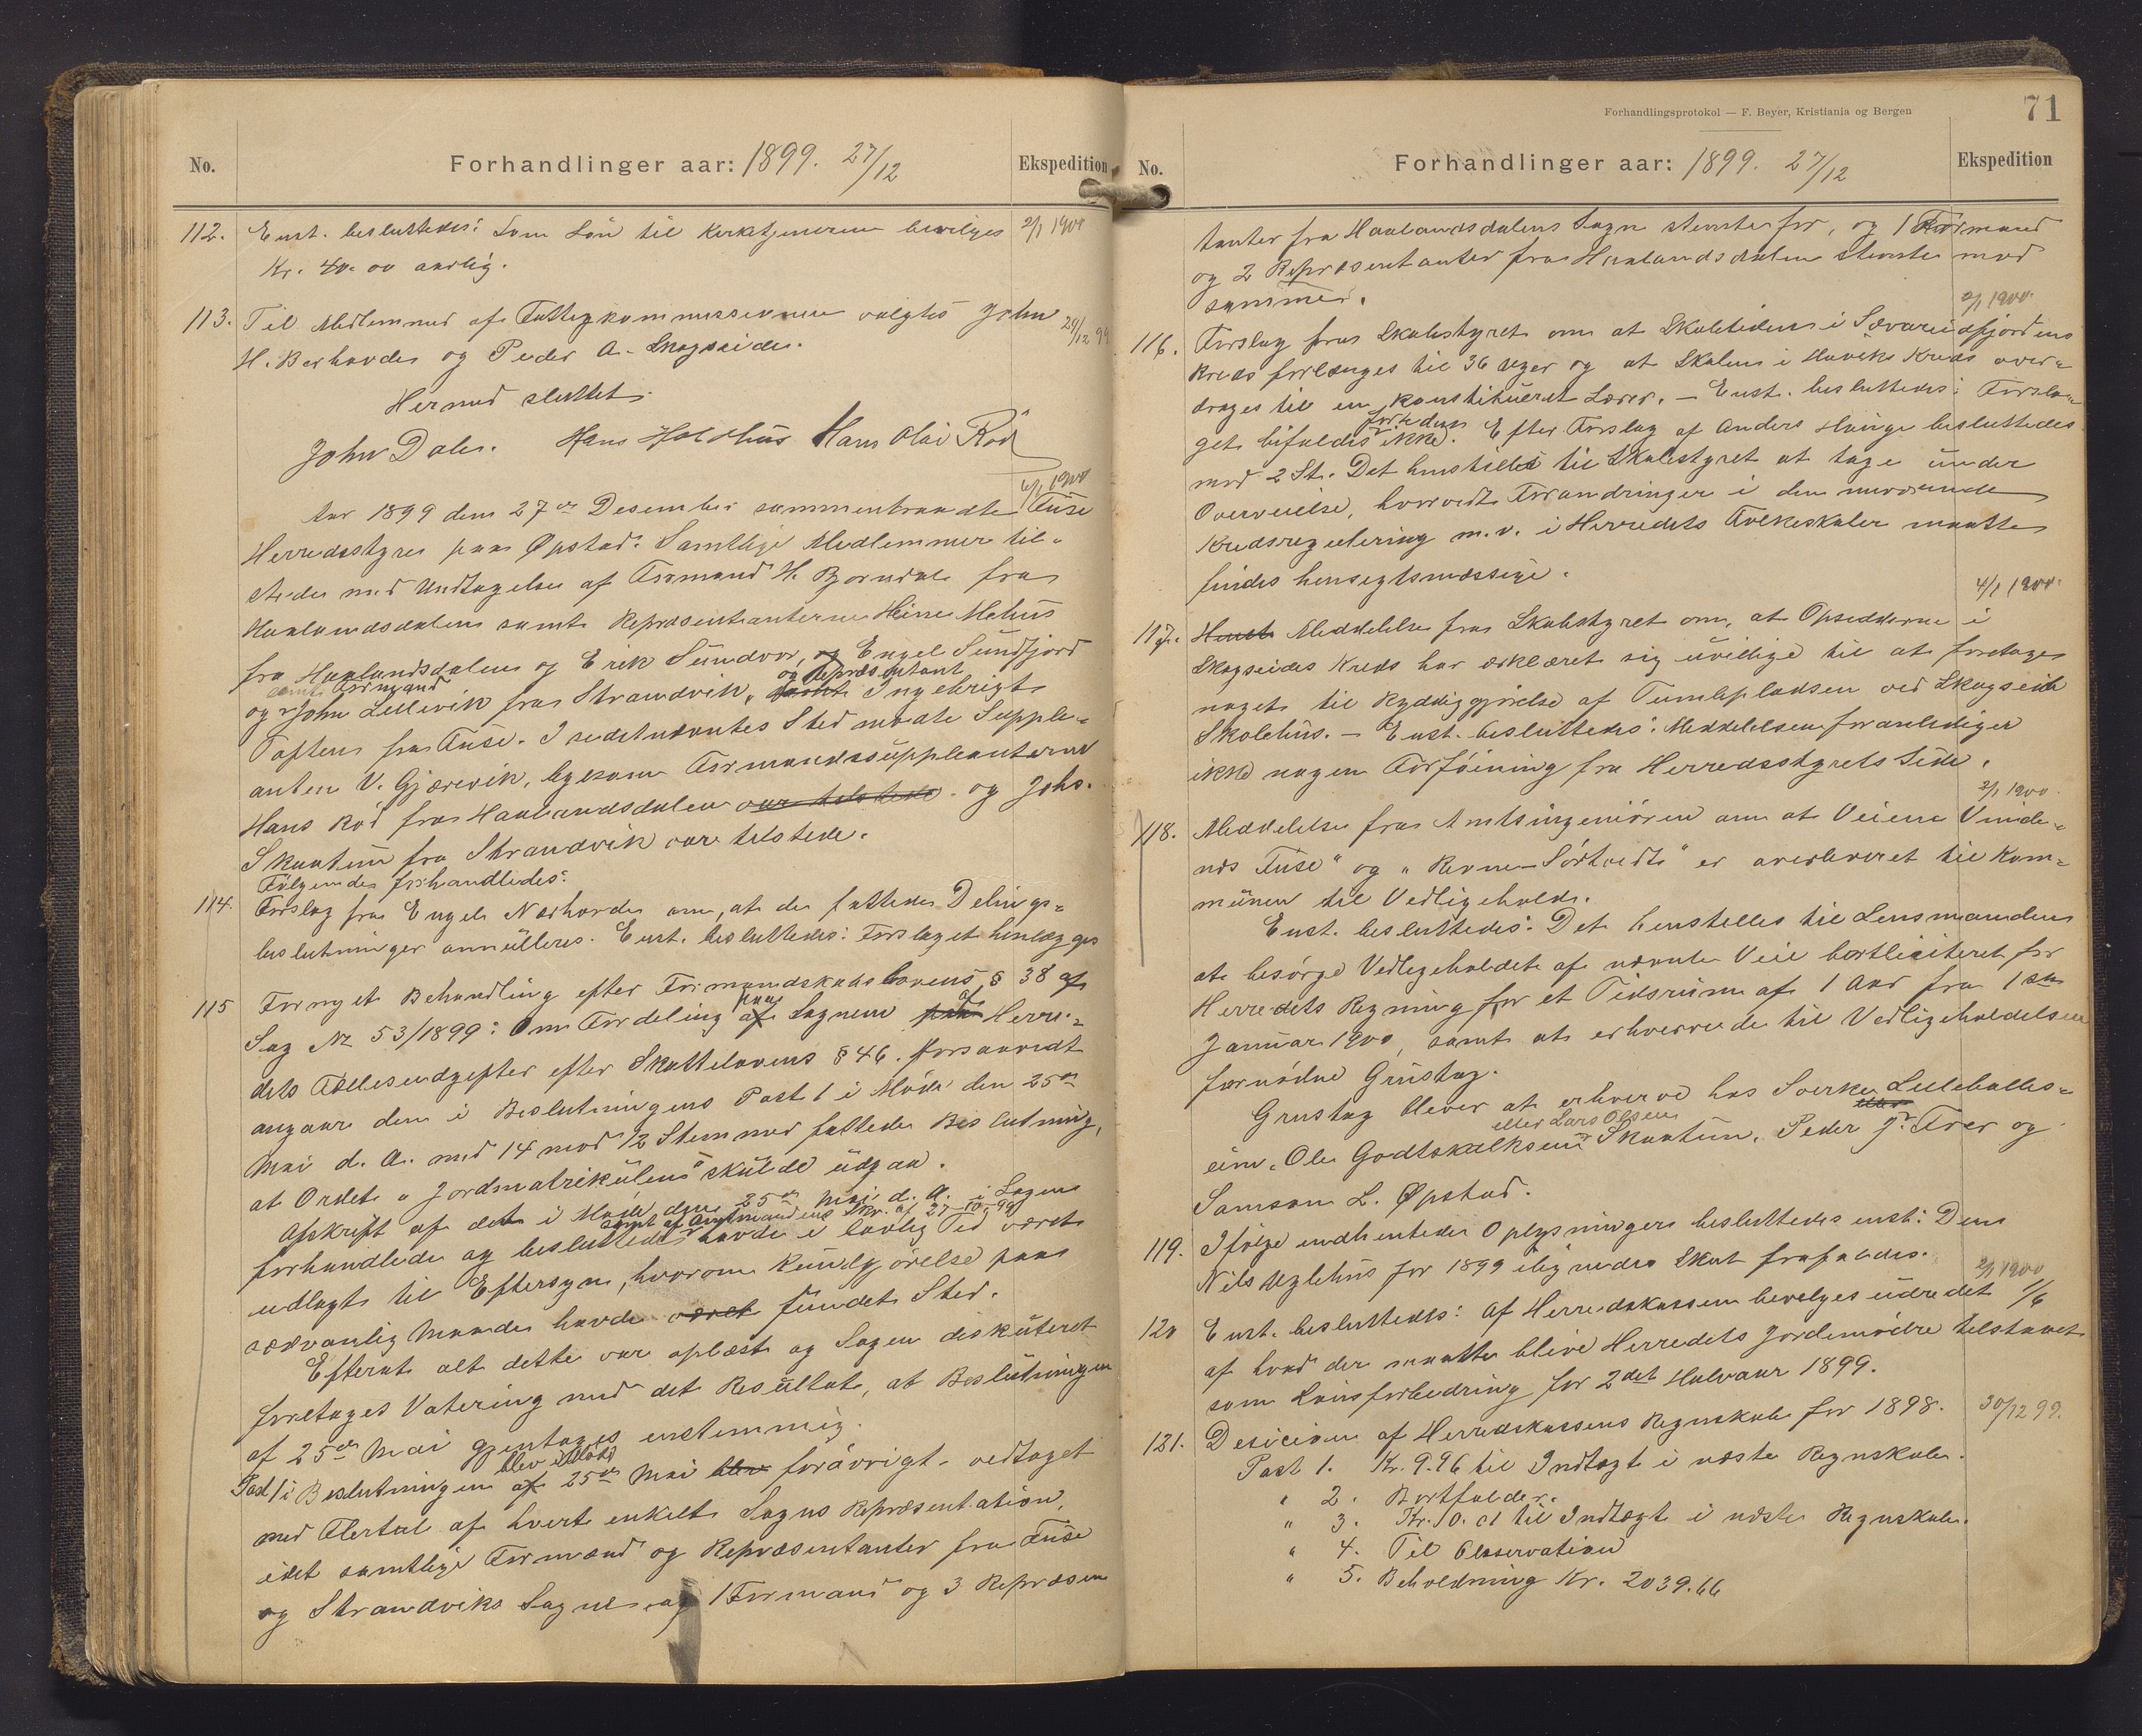 No.
Forhandlinger aar: 1899. 27/12
Ekspedition
112. Enst. besluttedes: Som Løn til Kirketjeneren bevilges 2/1 1900
Kr. 40.00 aarlig.
113. Til Medlemmer af Fattigkommissionen valgtes John 29/12 99
H. Berhovde og Peder A. Skogseide.
Hermed sluttet.
John Dale. Hans Holdhus Hans Olai Rød
4/1 1900
Aar 1899 den 27de Desember sammentraadte Fuse
Herredsstyre paa Øpstad. Samtlige Medlemmer til-
stede med Undtagelse af Formand H. Bjørndal fra
Haalandsdalen samt Repræsentanterne Heine Mehus
fra Haalandsdalen og Erik Sundvor, og Engel Sundfjord
samt Formand og Repræsentant
og John Lillevik fra Strandvik, samt Ingebrigt
Toften fra Fuse. I sidstnævntes Sted mødte Supple-
anten V. Gjærevik, ligesom Formandssuppleanterne
Hans Rød fra Haalandsdalen var tilstede. og Johs.
Skaatun fra Strandvik var tilstede.
Følgende forhandledes:
114. Forslag fra Engel Nærhovde om, at de fattede Delings-
beslutninger annulleres. Enst. besluttedes: Forslaget henlægges
115 Fornyet Behandling efter Formandskabslovens § 38 af
paa af
Sag No 53/1899: Om Fordeling af Sognene paa Herre-
dets Fællesudgifter efter Skattelovens § 46. forsaavidt
angaar den i Beslutningens Post 1 i Møde den 25de
Mai d. A. med 14 mod 12 Stemmer fattede Beslutning,
at Ordet "Jordmatrikulens" skulde udgaa.
Afskrift af det i Møde den 25de Mai d. A. i Sagen
samt af Amtmandens Skr. af 27-10-99
forhandlede og besluttede havde i lovlig Tid været
udlagt til Eftersyn, hvorom Kundgjørelse paa
sædvanlig Maade havde været fundet Sted.
Efterat alt dette var oplæst og Sagen diskuteret
foretoges Votering med det Resultat, at Beslutningen
af 25de Mai gjentoges enstemmig.
blev
Post 1 i Beslutningen af 25de Mai blev forøvrigt vedtaget
med Flertal af hvert enkelt Sogns Repræsentation,
idet samtlige Formænd og Repræsentanter fra Fuse
og Strandviks Sogne og 1 Formand og 3 Repræsen
Forhandlingsprotokol — F. Beyer, Kristiania og Bergen
71
No.
Forhandlinger aar: 1899. 27/12
Ekspedition
tanter fra Haalandsdalens Sogn stemte for, og 1 Formand
og 2 Repræsentanter fra Haalandsdalen stemte mod
samme.
2/1 1900.
116. Forslag fra Skolestyret om at Skoletiden i Sævareidfjordens
Kreds forlænges til 36 Uger og at Skolen i Haviks Kreds over-
drages til en konstitueret Lærer. — Enst. besluttedes: Forsla-
get bifaldes ikke. Efter Forslag af Anders Hauge besluttedes
mod 2 St. Det henstilles til Skolestyret at tage under
Overveielse, hvorvidt Forandringer i den nuværende
Kredsregulering m.v. i Herredets Folkeskoler maatte
findes hensigtsmæssige.
4/1 1900.
117. Meddelelse fra Skolestyret om, at Opsidderne i
Skogseides Kreds har erklæret sig uvillige til at foretage
noget til Ryddiggjørelse af Tumlepladsen ved Skogseide
Skolehus. — Enst. besluttedes: Meddelelsen foranlediger
ikke nogen Forføining fra Herredsstyrets Side.
2/1 1900.
118. Meddelelse fra Amtsingeniøren om at Veiene Vinde-
nes Fuse" og "Revne-Sørtvedt" er overleveret til Kom-
munen til Vedligehold.
Enst. besluttedes: Det henstilles til Lensmanden
at besørge Vedligeholdet af nævnte Veie bortliciteret for
Herredets Regning for et Tidsrum af 1 Aar fra 1ste
Januar 1900, samt at erhverve de til Vedligeholdelsen
fornødne Grustag.
Grustag bliver at erhverve hos Sverke Lilleballes-
eller Lars Olsen
eim. Ole Godtskalksen Skaatun, Peder J. Frer og
Samson L. Øpstad.
119. Ifølge indhentede Oplysninger besluttedes enst: Den
Nils Uglehus for 1899 ilignede Skat frafaldes.
2/1 1900
120 Enst. besluttedes: Af Herredskassen bevilges udredet 1/6
af hvad der maatte blive Herredets Jordemødre tilstaaet
som Lønsforbedring for 2det Halvaar 1899.
121. Desicion af Herredskassens Regnskab for 1898. 30/12 99.
Post 1. Kr. 9.96 til Indtægt i næste Regnskab.
" 2. Bortfalder.
" 3. Kr. 10.01 til Indtægt i næste Regnskab.
" 4. Til Observation
" 5. Beholdning Kr. 2039.66